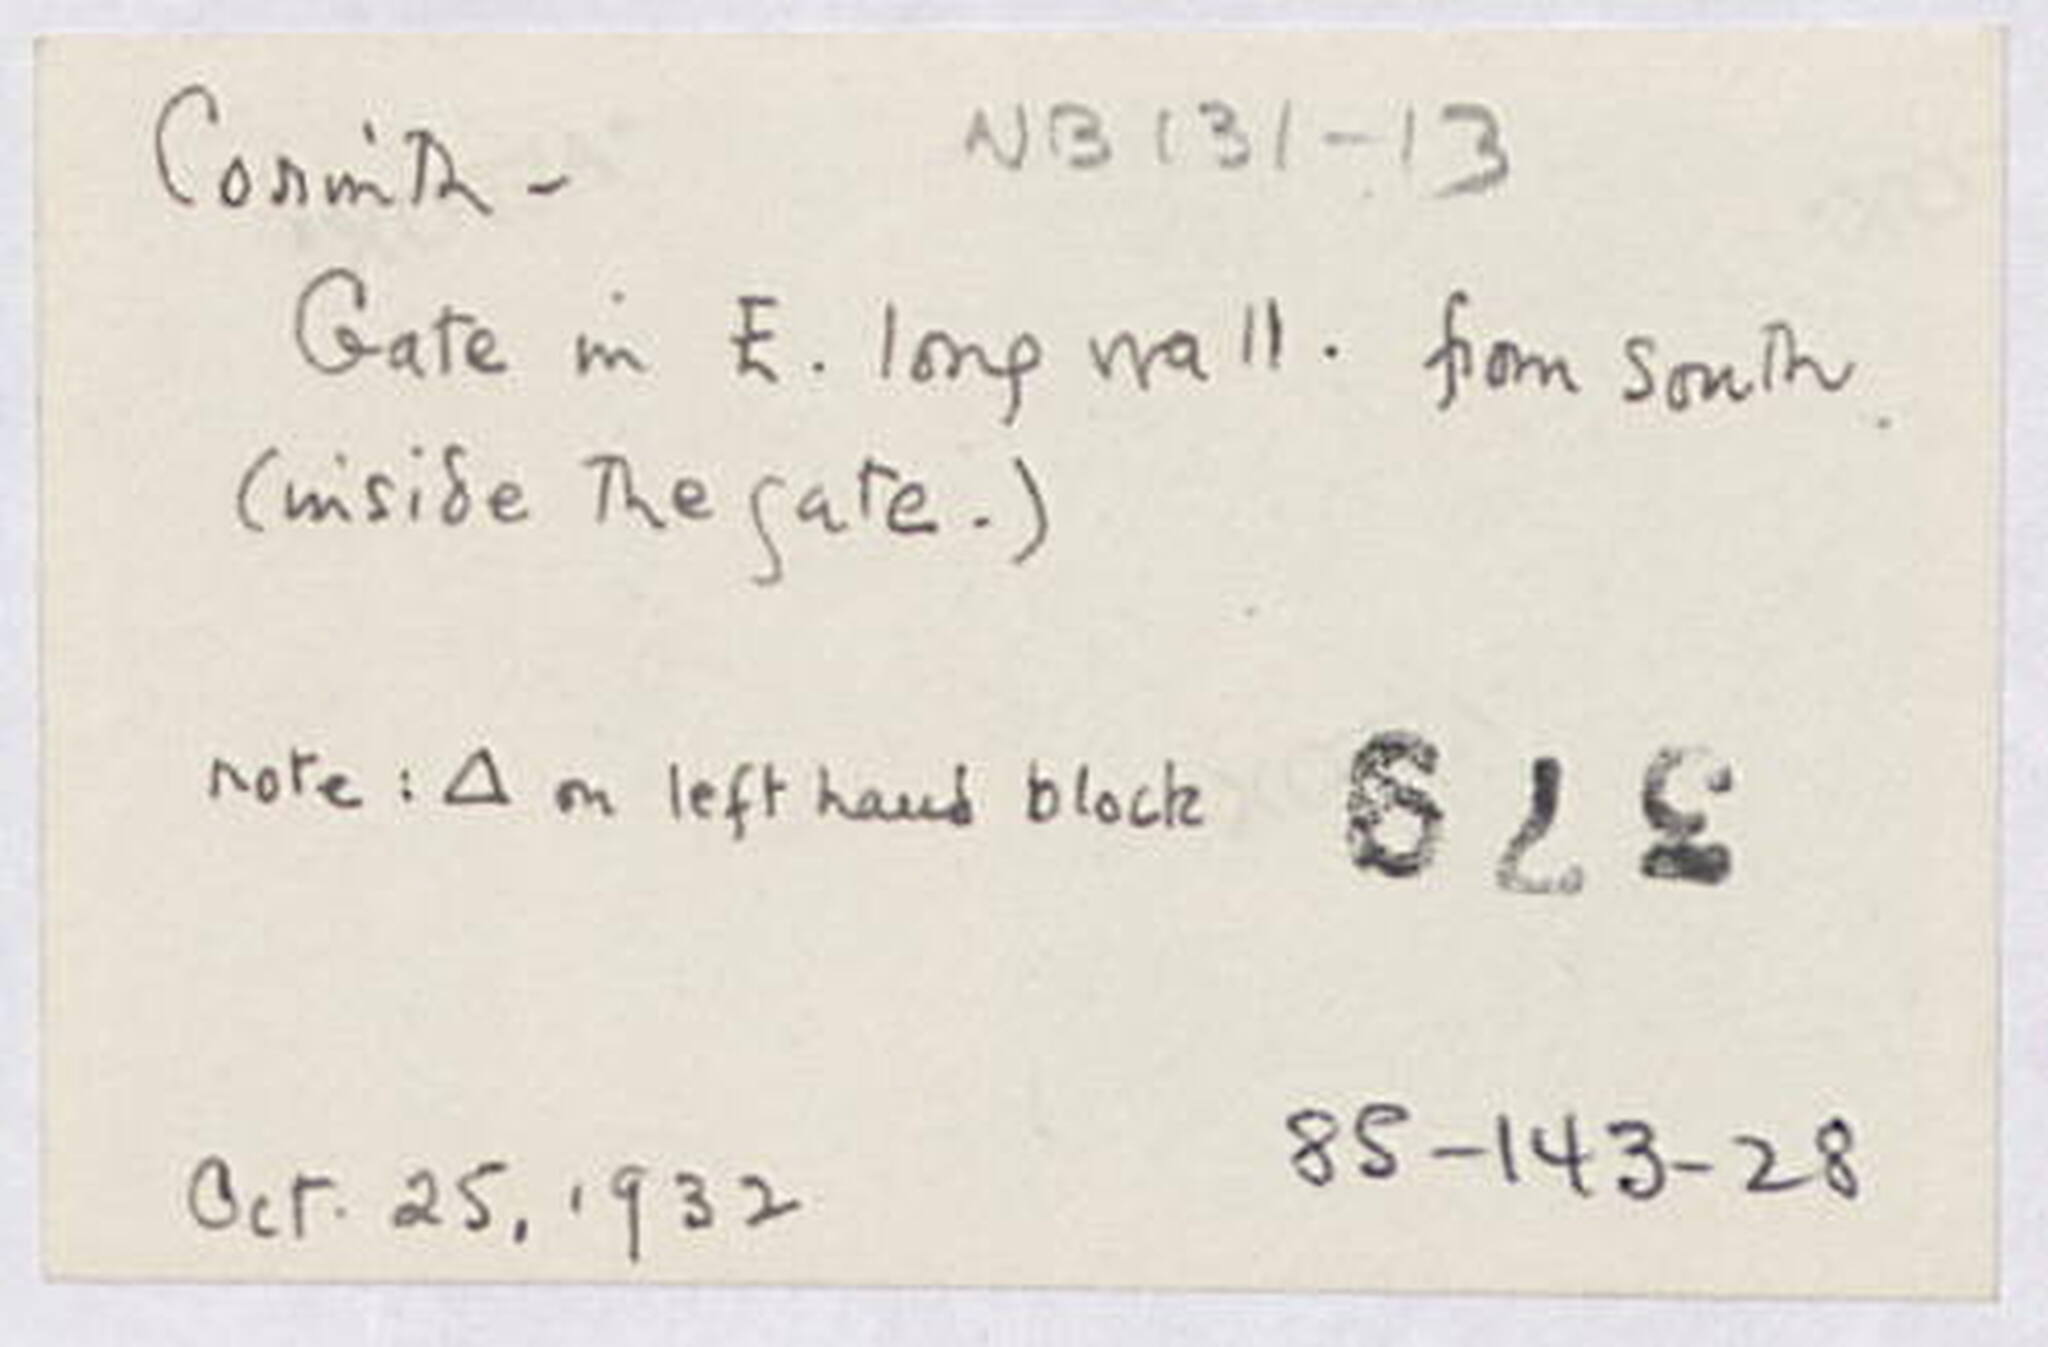 Corinth - NB 131-13
Gate in E. long wall. from south.
(inside the gate.)
note: Δ on left hand block
Oct. 25, 1932 85-143-28